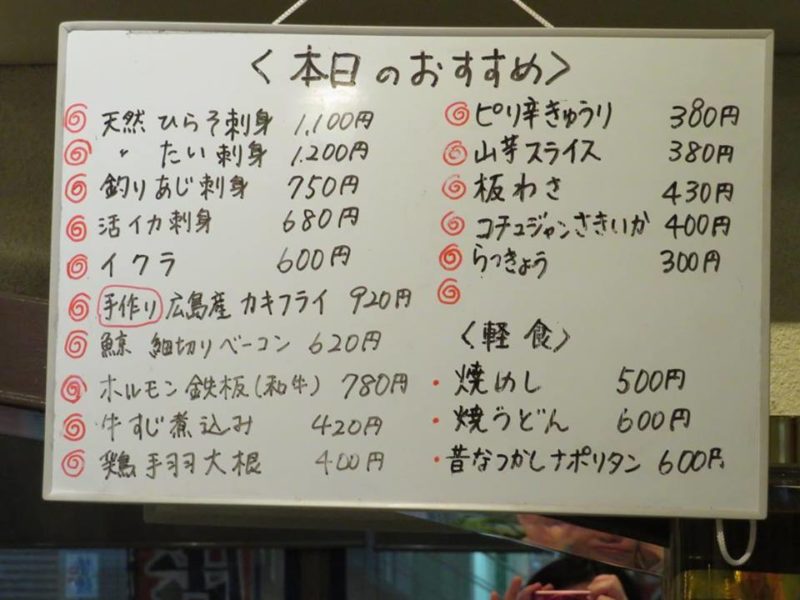 〈本日のおすすめ〉
天然 ひらそ刺身 1,100円
〃 たい刺身 1,200円
釣りあじ刺身 750円
活イカ刺身 680円
イクラ 600円
手作り 広島産 カキフライ 920円
鯨 細切りベーコン 620円
ホルモン鉄板(和牛) 780円
牛すじ煮込み 420円
鶏手羽大根 400円
ピリ辛きゅうり 380円
山芋スライス 380円
板わさ 430円
コチュジャンさきいか 400円
らっきょう 300円
〈軽食〉
・焼めし 500円
・焼うどん 600円
・昔なつかしナポリタン 600円